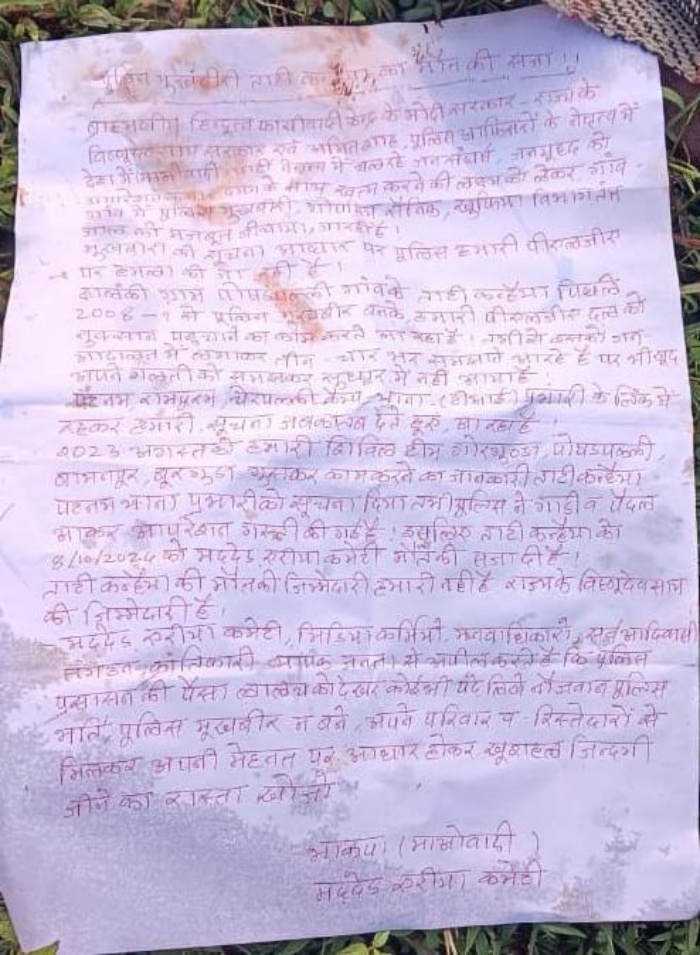 पुलिस मूखबीरी ताटी कन्हैया का मौत की सजा!!
ब्राहमणीय हिन्दुत्व फासीवादी केन्द्र के मोदी सरकार - राज्य के
विष्णुदेव साय सरकार एवं अमितशाह, पुलिस आफिसरों के नेतृत्व में
देश में माओवादी पार्टी नेतृत्व में चलरहे जनसंघर्ष, जनयुद्ध को
के साथ खत्म करने की लक्ष्य को लेकर, गांव -
गांव में पुलिस मूखबीरी, गोपनीय सैनिक, खुफिया विभाग तंत्र
को मजबूत बीचाया, जा रहा है!
मूखबीरों की सूचना आधार पर पुलिस हमारी पीएलजीए
पर हमला की जा रही है!
इलाका ग्राम पोषडपल्ली गांवके ताटी कन्हैया पिछले
2008-9 से पुलिस मूखबीर बनके, हमारी पीएलजीए दल को
नुकसान पहुचाने का काम करते आ रहा है! तभी से उसको जन
आदालत में लगाकर तीन - चार भर समझाते आरहे है पर भी खुद
अपने गलती को समझकर सुधार में नही आया है!
पटनम, रामपुरम, चेरपल्ली केम्प, थाना (टीआई) प्रभारी के लिंक में
रहकर हमारी सूचना जानकारी देते हुए आ रहा है!
2023 अगस्त को हमारी सिविल टीम गोरगुण्डा, पोषडपल्ली,
बामनपुर, चूरगुडा घूमकर काम करने का जानकारी ताटी कन्हैया
पटनम थाना प्रभारी को सूचना दिया तभी पुलिस ने गाडी व पैदल
आकर आपरेशन गस्ती की गई है! इसलिए ताटी कन्हैया को
8/10/2024 को मद्देड एरीया कमेटी मौत की सजा दी है!
ताटी कन्हैया की मौत की जिम्मेदारी हमारी नही है राज्य के विष्णुदेव साय
की जिम्मेदारी है!
- मद्देड एरीया कमेटी, मिडिया कर्मियो, मानवाधिकारो, सर्व आदिवासी
संगठन, क्रांतिकारी व्यापक जनता से अपील करते है कि पुलिस
प्रसासन की पैसा लालच को देखर कोई भी पढे लिखे नौजवान पुलिस
भर्ति, पुलिस मूखबीर न बने, अपने परिवार व रिस्तेदारों से
मिलकर अपनी मेहनत पर आधार होकर खूशहाल जिन्दगी
जीने का रास्ता खोजो
भाकपा (माओवादी)
मद्देड एरीया कमेटी